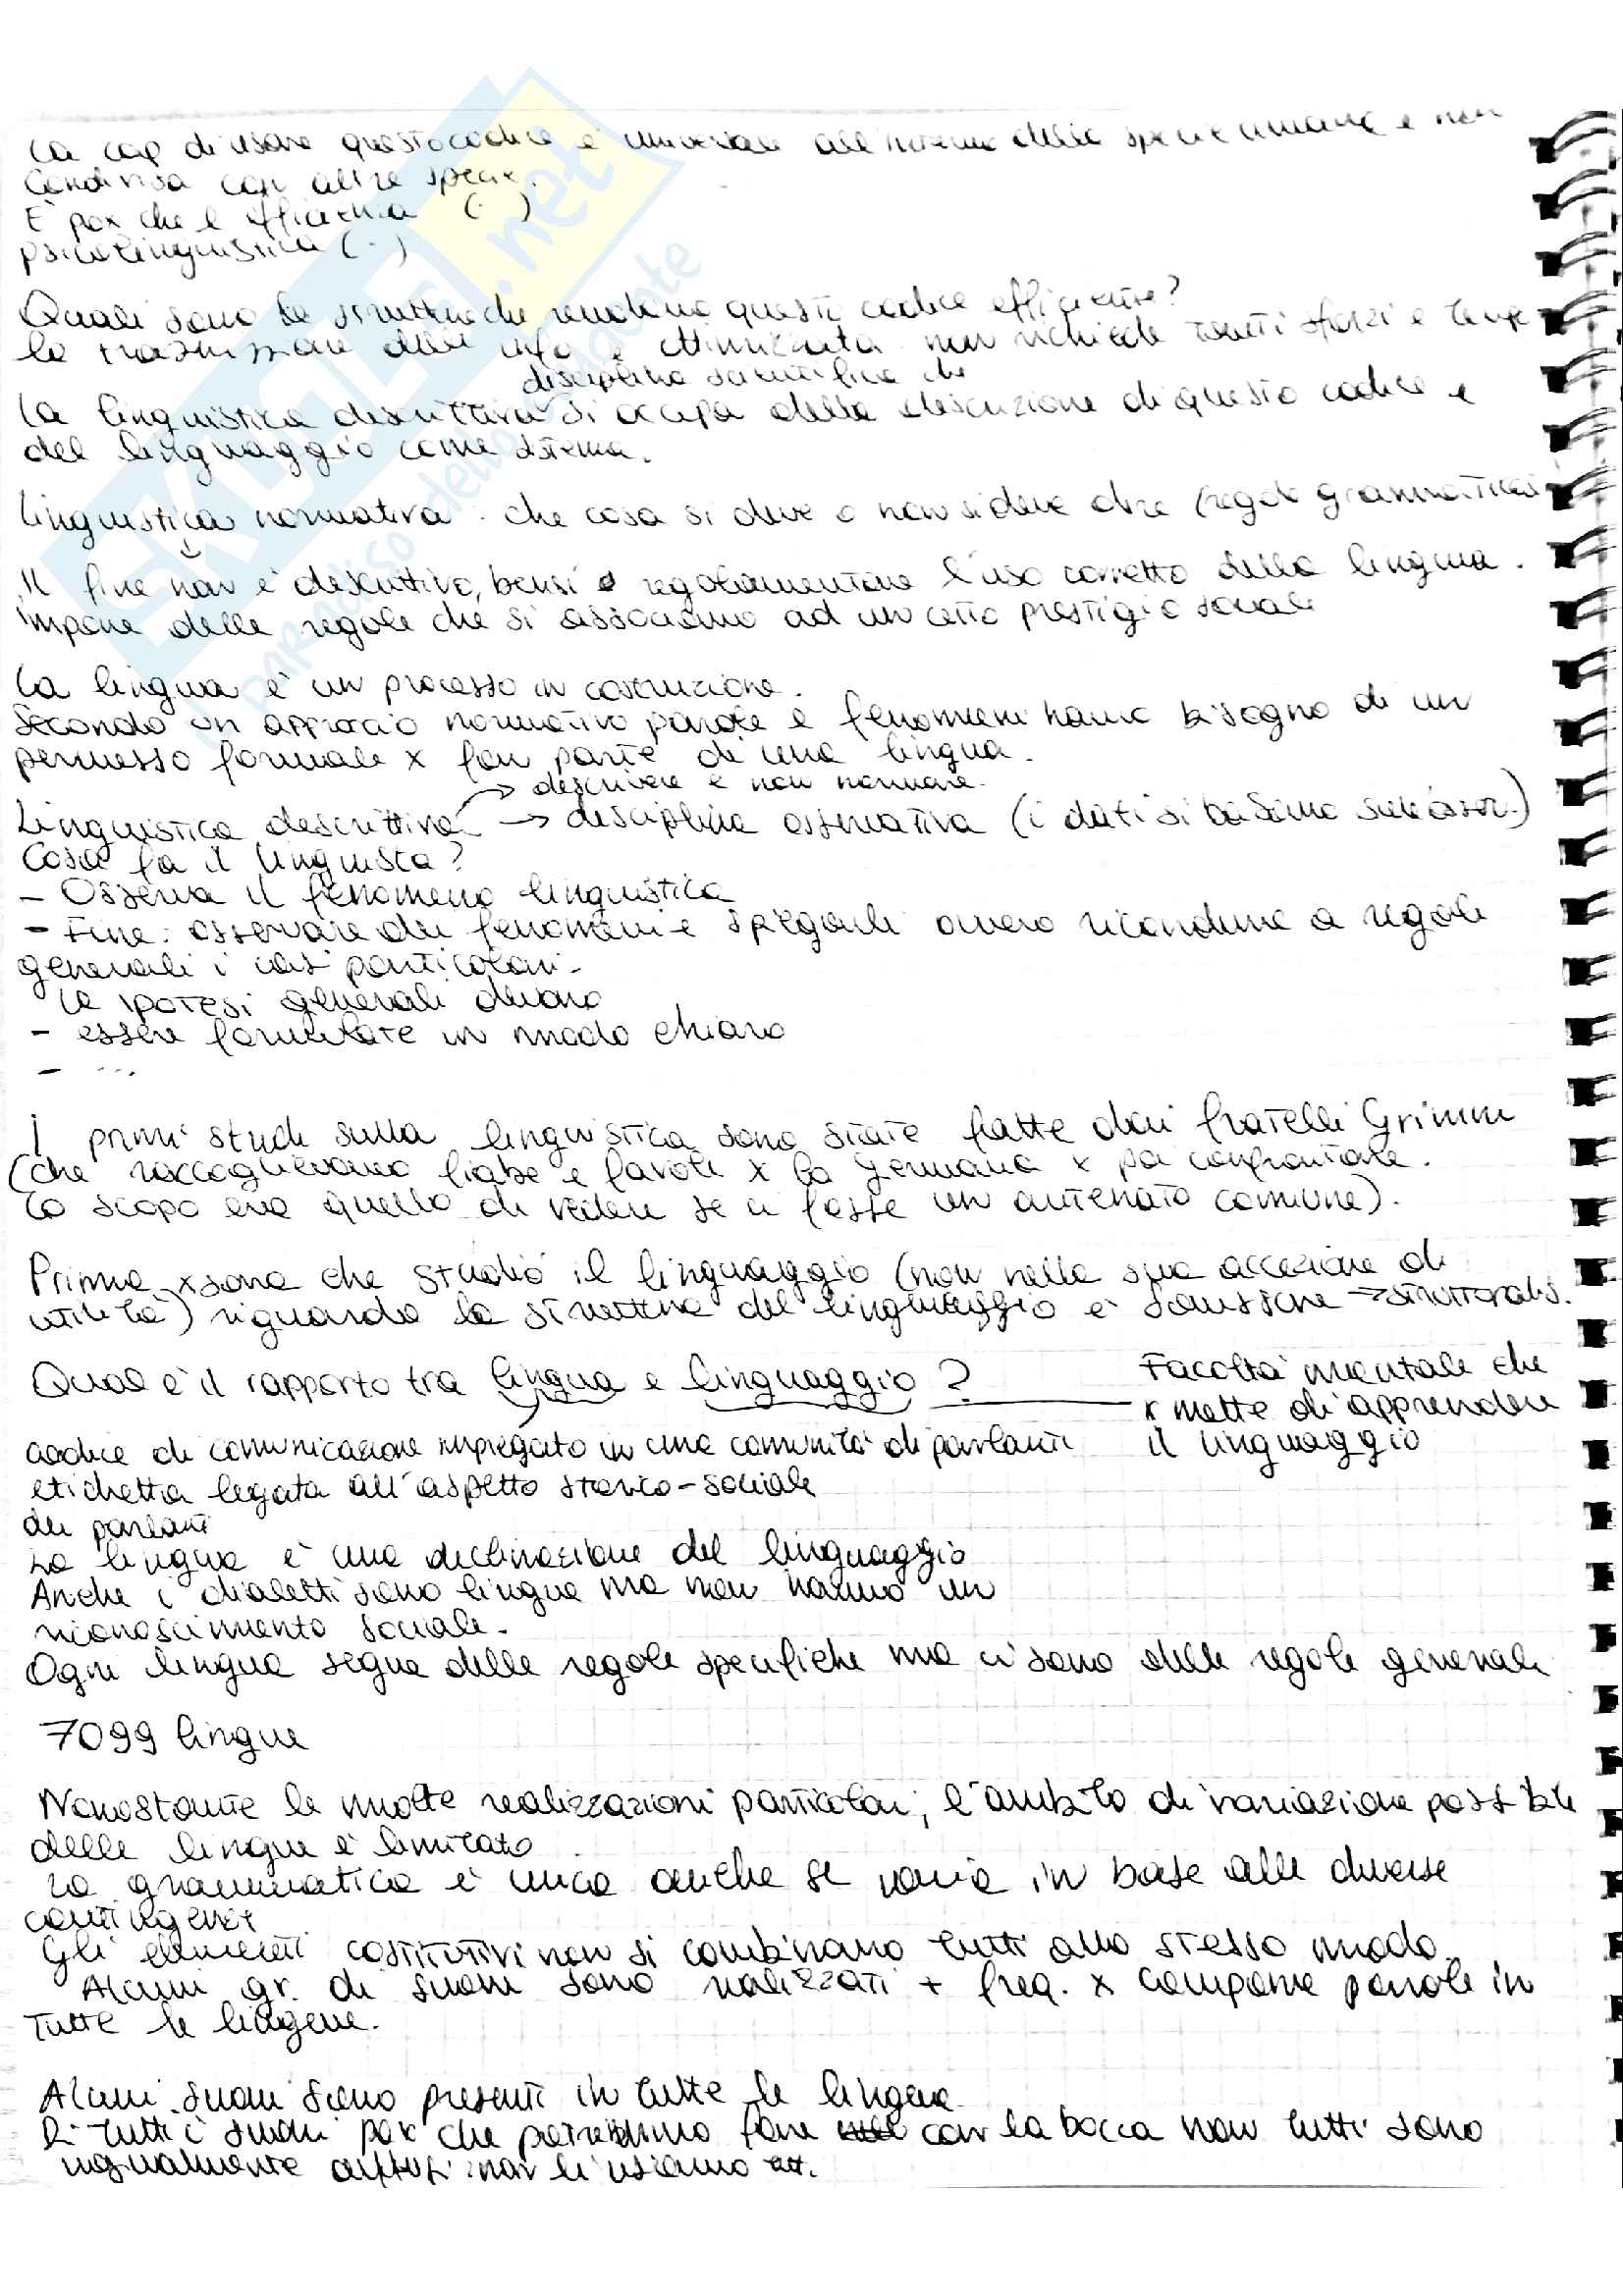 La cap di usare questo codice è universale all'interno della specie umana e non
condivisa con altre specie.
È pox che l efficienza (·)
psicolinguistica (·)
Quali sono le strutture che rendono questo codice efficiente?
la trasmissione delle info è ottimizzata non richiede tanti sforzi e tempo
disciplina scientifica che
La linguistica descrittiva si occupa della descrizione di questo codice e
del linguaggio come sistema.
Linguistica normativa · che cosa si deve o non si deve dire (regole grammaticali)
Il fine non è descrittivo, bensì regolamentare l'uso corretto della lingua.
impone delle regole che si associano ad un certo prestigio sociale
La lingua è un processo in costruzione.
Secondo un approccio normativo parole e fenomeni hanno bisogno di un
permesso formale x far parte di una lingua.
→ descrivere e non normare.
Linguistica descrittiva → disciplina osservativa (i dati si basano sull'osser.)
Cosa fa il linguista?
- Osserva il fenomeno linguistico
- Fine: osservare dei fenomeni e spiegarli ovvero ricondurre a regole
generali i casi particolari.
Le ipotesi generali devono
- essere formulate in modo chiaro
- ...
I primi studi sulla linguistica sono state fatte dai fratelli Grimm
(che raccoglievano fiabe e favole x la Germania x poi confrontarle.
Lo scopo era quello di vedere se ci fosse un antenato comune).
Prima xsona che studiò il linguaggio (non nella sua accezione di
utilità) riguardo la struttura del linguaggio è Saussure → strutturalis.
Qual è il rapporto tra lingua e linguaggio?
Facoltà mentale che
xmette di apprendere
il linguaggio
codice di comunicazione impiegato in una comunità di parlanti
etichetta legata all'aspetto storico-sociale
dei parlanti
La lingua è una declinazione del linguaggio
Anche i dialetti sono lingue ma non hanno un
riconoscimento sociale.
Ogni lingua segue delle regole specifiche ma ci sono delle regole generali
7099 lingue
Nonostante le molte realizzazioni particolari, l'ambito di variazione possibile
delle lingue è limitato
La grammatica è unica anche se varia in base alle diverse
contingenze
Gli elementi costitutivi non si combinano tutti allo stesso modo.
Alcuni gr. di suoni sono realizzati + freq. x comporre parole in
tutte le lingue.
Alcuni suoni sono presenti in tutte le lingue
Di tutti i suoni pox che potremmo fare con la bocca non tutti sono
ugualmente diffusi: non li usiamo
SKUOLA.net
il paradiso dello studente